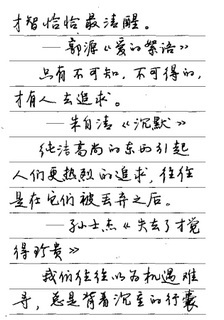 才智恰恰最清醒。
——郭源《爱的絮语》
只有不可知，不可得的，
才有人去追求。
——朱自清《沉默》
纯洁高尚的东西引起
人们更热烈的追求，往往
是在它们被丢弃之后。
——孙士杰《失去了才觉
得珍贵》
我们往往以为机遇难
寻，总是背着沉重的行囊